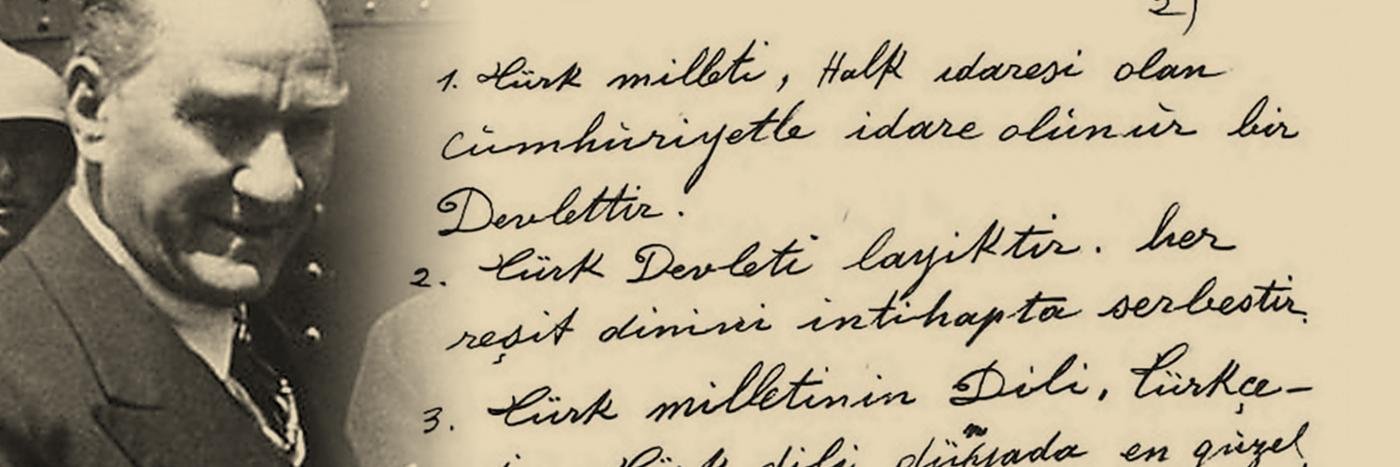 2)
1. Türk milleti, Halk idaresi olan
cümhuriyetle idare olunur bir
Devlettir.
2. Türk Devleti layiktir. her
reşit dinini intihapta serbestir.
3. Türk milletinin Dili, Türkçe-
Türk dili dünyada en güzel